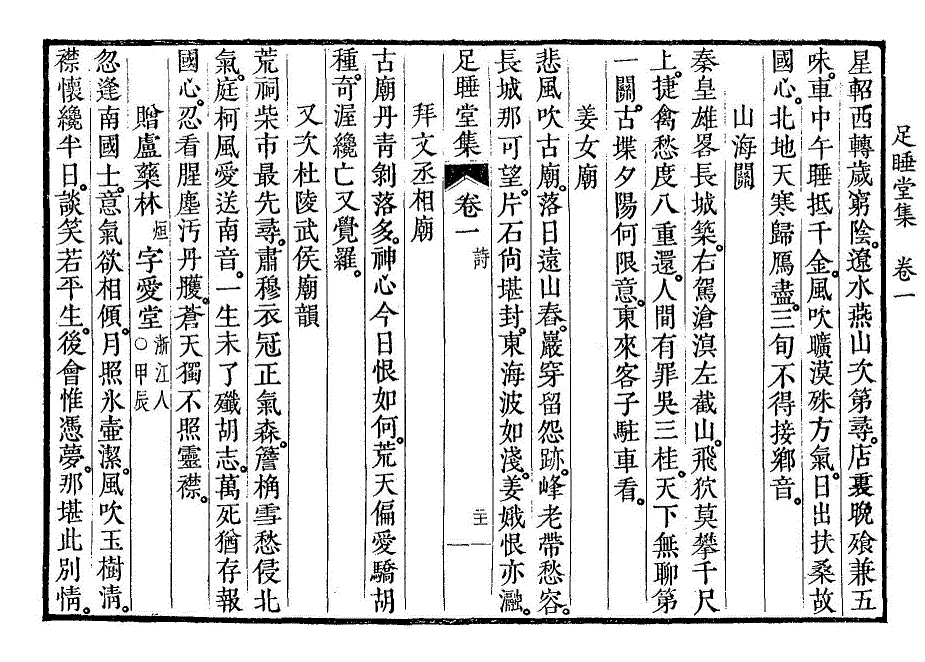 足睡堂集 卷一
星軺西轉歲窮陰。遼水燕山次第尋。店裏晩飱兼五
味。車中午睡抵千金。風吹曠漠殊方氣。日出扶桑故
國心。北地天寒歸鴈盡。三旬不得接鄕音。
山海關
秦皇雄畧長城築。右駕滄溟左截山。飛狖莫攀千尺
上。捷禽愁度八重還。人間有罪吳三桂。天下無聊第
一關。古堞夕陽何限意。東來客子駐車看。
姜女廟
悲風吹古廟。落日遠山舂。巖穿留怨跡。峰老帶愁容。
長城那可望。片石尙堪封。東海波如淺。姜娥恨亦瀜。
足睡堂集 卷一 詩 二十一
拜文丞相廟
古廟丹靑剝落多。神心今日恨如何。荒天偏愛驕胡
種。奇渥纔亡又覺羅。
又次杜陵武侯廟韻
荒祠柴市最先尋。肅穆衣冠正氣森。簷桷雪愁侵北
氣。庭柯風愛送南音。一生未了殲胡志。萬死猶存報
國心。忍看腥塵汚丹雘。蒼天獨不照靈襟。
贈盧藥林 烜 字愛堂 浙江人 ○甲辰
忽逢南國士。意氣欲相傾。月照氷壺潔。風吹玉樹淸。
襟懷纔半日。談笑若平生。後會惟憑夢。那堪此別情。